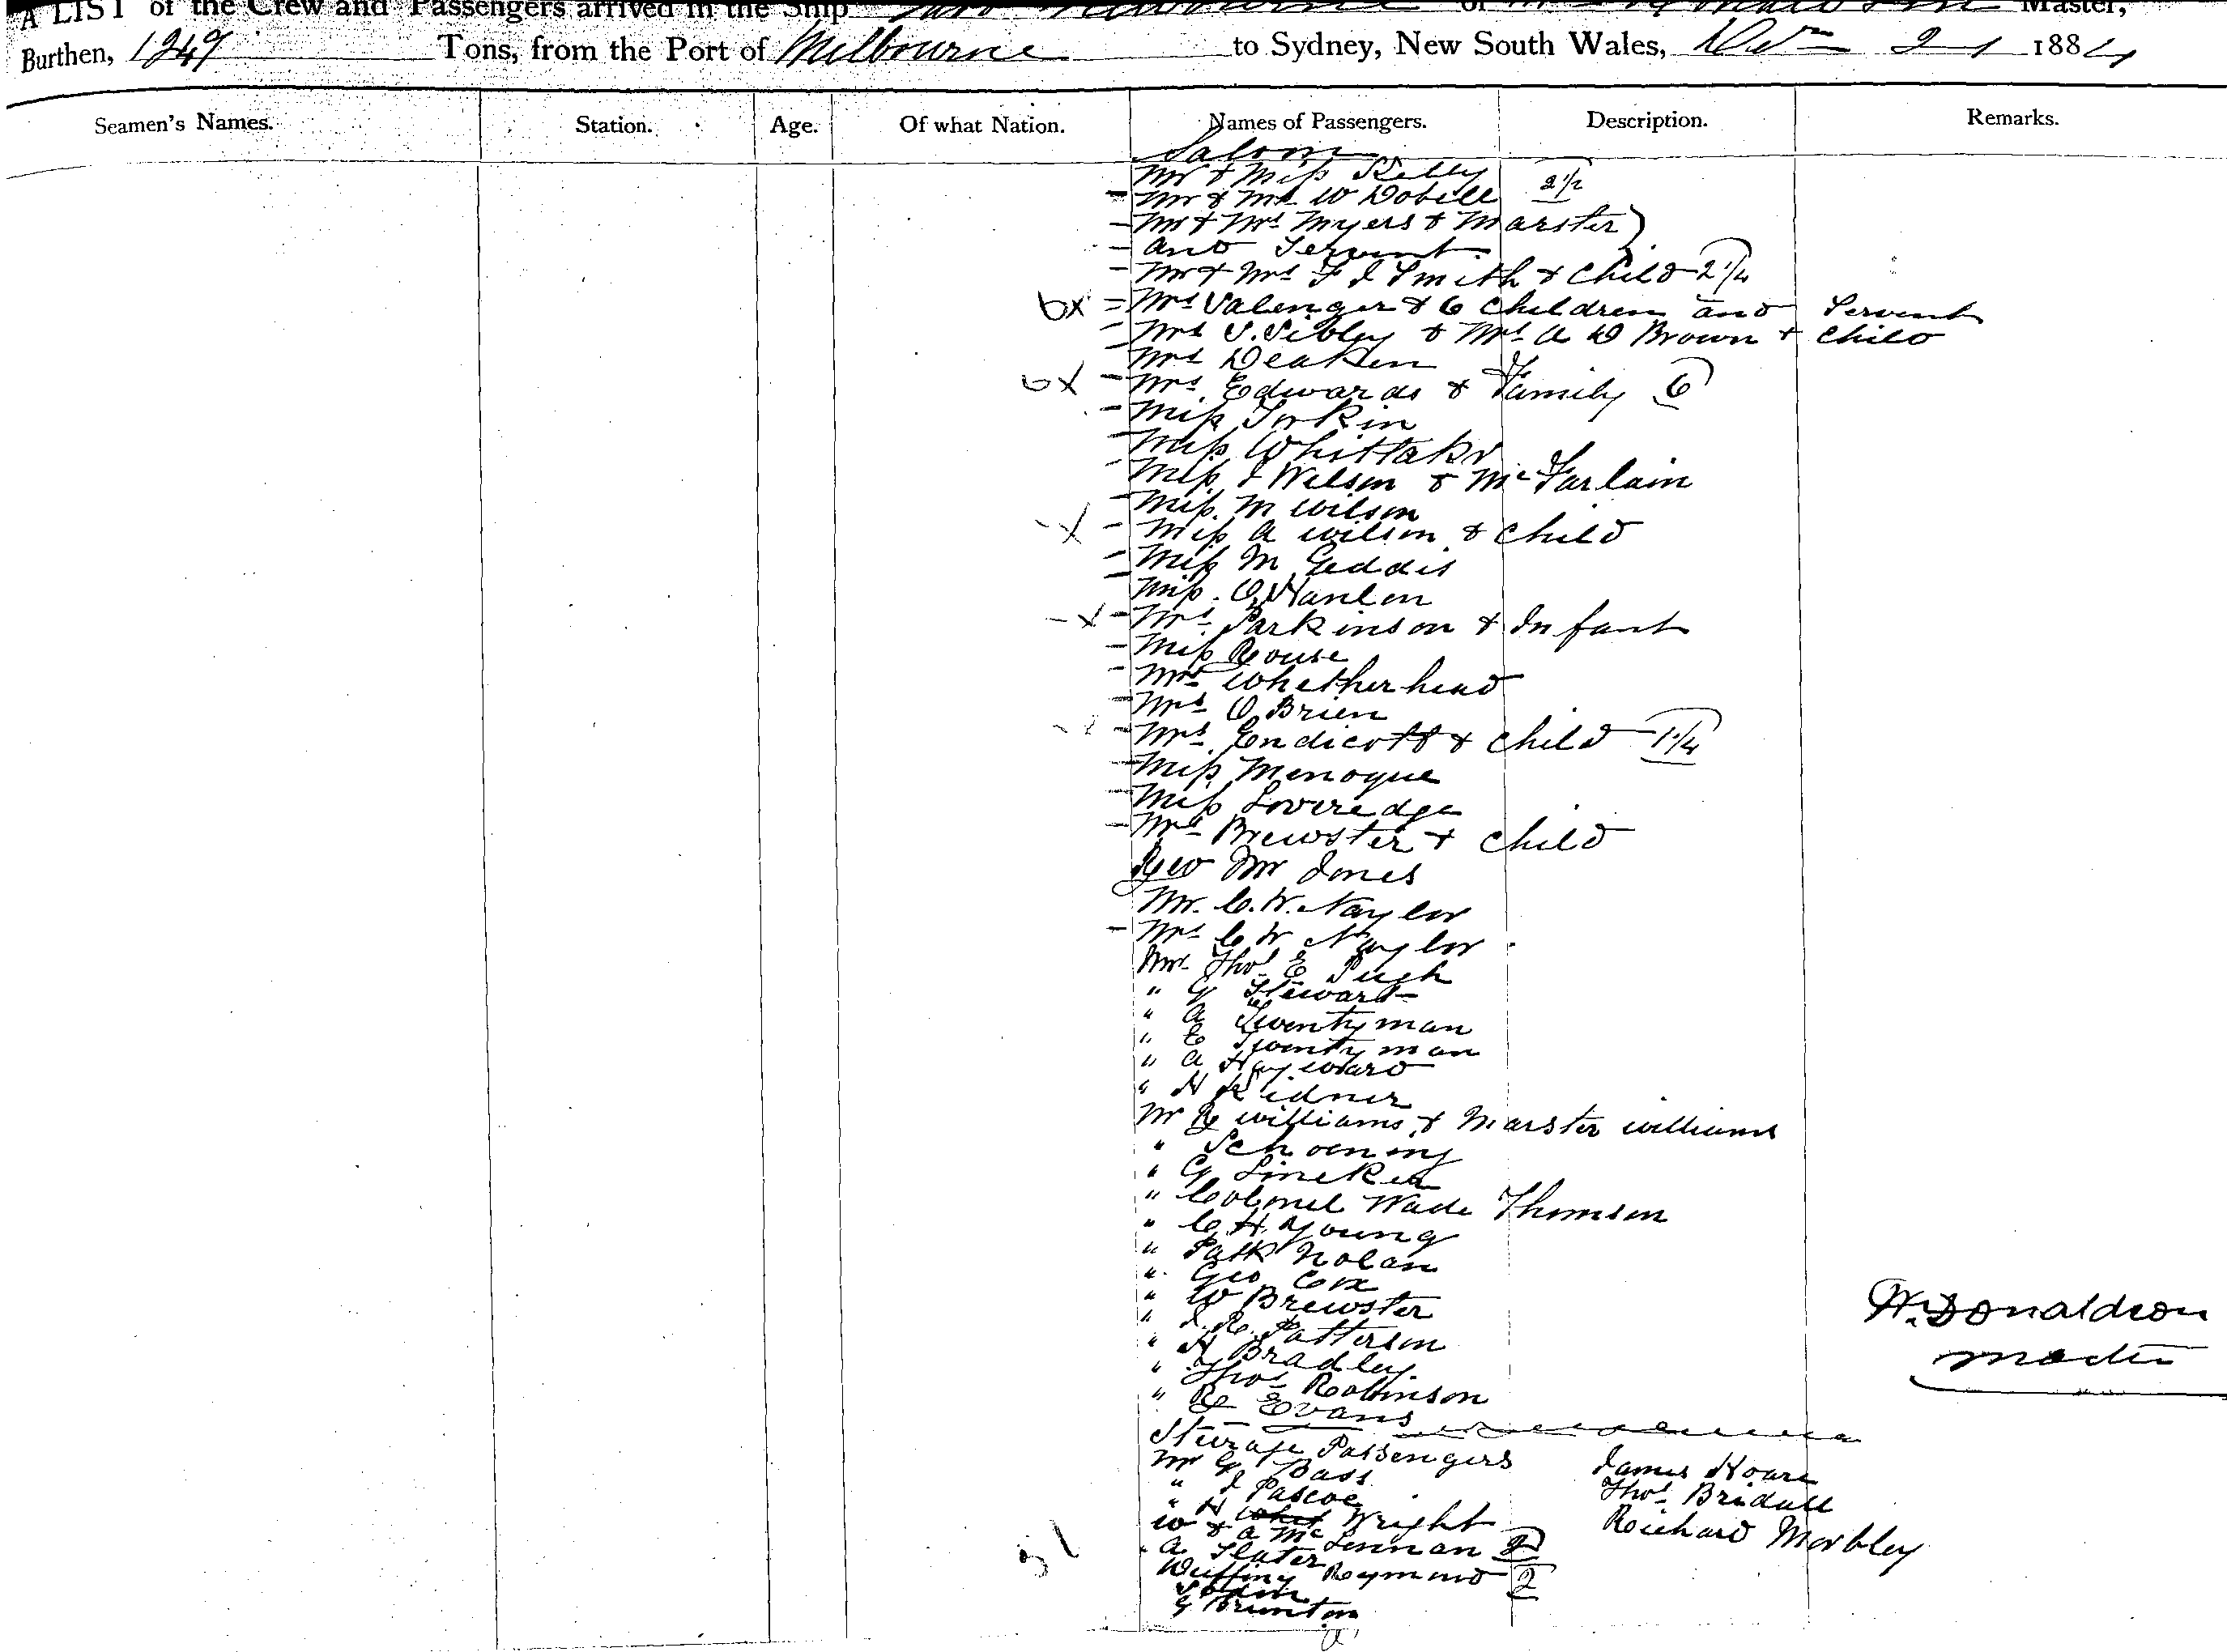 A LIST of the Crew and Passengers arrived in the Ship Melbourne of Donaldson Master,
Burthen, 1249 Tons, from the Port of Melbourne to Sydney, New South Wales, 21 1884
Seamen's Names. Station. Age. Of what Nation. Names of Passengers. Description. Remarks.
Saloon
Mr & Miss Kelly 2 1/2
Mr & Mrs W Dobell
Mr & Mrs Myers & Marster)
and Servant
Mr & Mrs F J Smith & Child 2 1/4
6x Mrs Valenger & 6 Children and Servant
Mrs S. Sibley & Mrs A D Brown & Child
Mrs Deaken
6x Mrs Edwards & Family 6
Miss Torkin
Miss Whittakr
Miss J Wilson & McFarlain
Miss M Wilson
x Miss A Wilson & Child
Miss M Geddis
Miss O'Hanlon
x Mrs Parkinson & Infant
Miss Rouse
Whetherhead
Mrs O Brien
Mrs Endicott & Child 1 1/4
Miss Menogue
Miss Loveredge
Mrs Brewster & Child
Rev Mr Jones
Mr. C. W. Naylor
Mrs C W Naylor
Mr Thos E Pugh
" G Steward
" A Twentyman
" E Twentyman
" A Hayward
" H Kidner
Mr R Williams & Marster Williams
" Schoening
" G Lineker
" Colonel Wade Thomson
" C. H. Young
" Patk Nolan
" Geo Cox
" W Brewster
" J. R. Patterson
" H Bradley
" Thos Robinson
" R Evans
W. Donaldson
Master
Steerage Passengers
Mr G Bass James Hoare
" J Pascoe Thos Bridall
" H Wright Richard Morbley
W & A McLennan 2
A Slater
Raymond 2
G Brunton